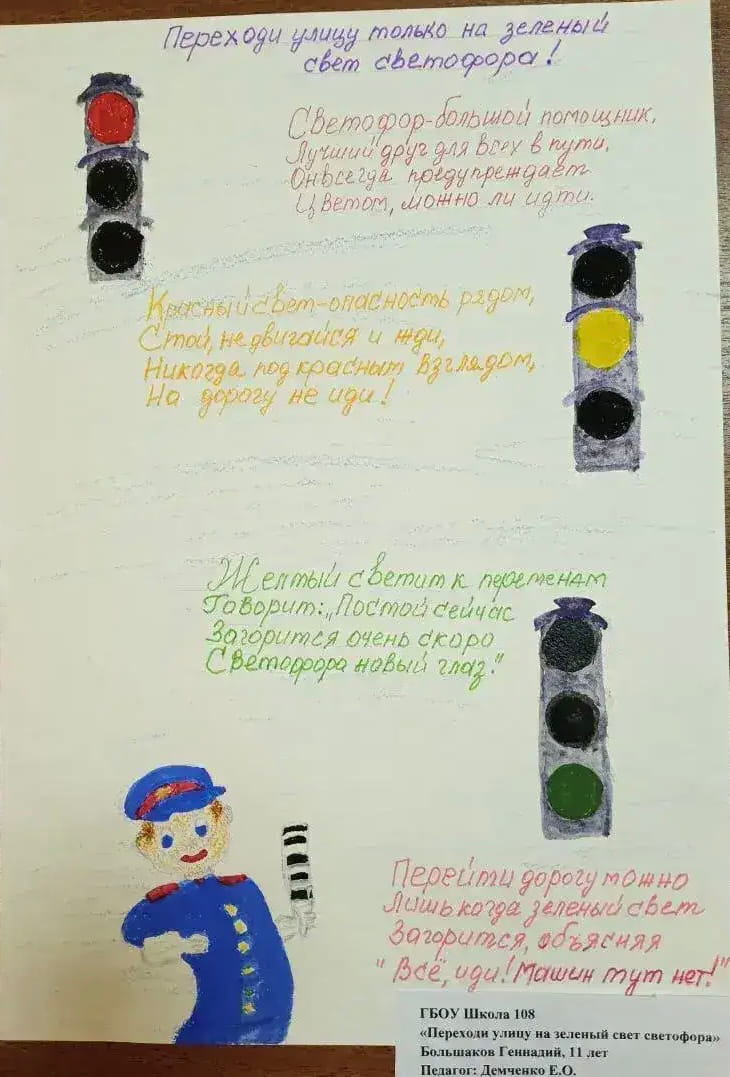 Переходи улицу только на зеленый
свет светофора!
Светофор-большой помощник,
Лучший друг для всех в пути,
Он всегда предупреждает
Цветом, можно ли идти.
Красный свет-опасность рядом,
Стой, не двигайся и жди,
Никогда под красным взглядом,
На дорогу не иди!
Желтый светит к переменам
Говорит: „Постой сейчас
Загорится очень скоро
Светофора новый глаз."
Перейти дорогу можно
Лишь когда зеленый свет
Загорится, объясняя
"Всё, иди! Машин тут нет!"
ГБОУ Школа 108
«Переходи улицу на зеленый свет светофора»
Большаков Геннадий, 11 лет
Педагог: Демченко Е.О.